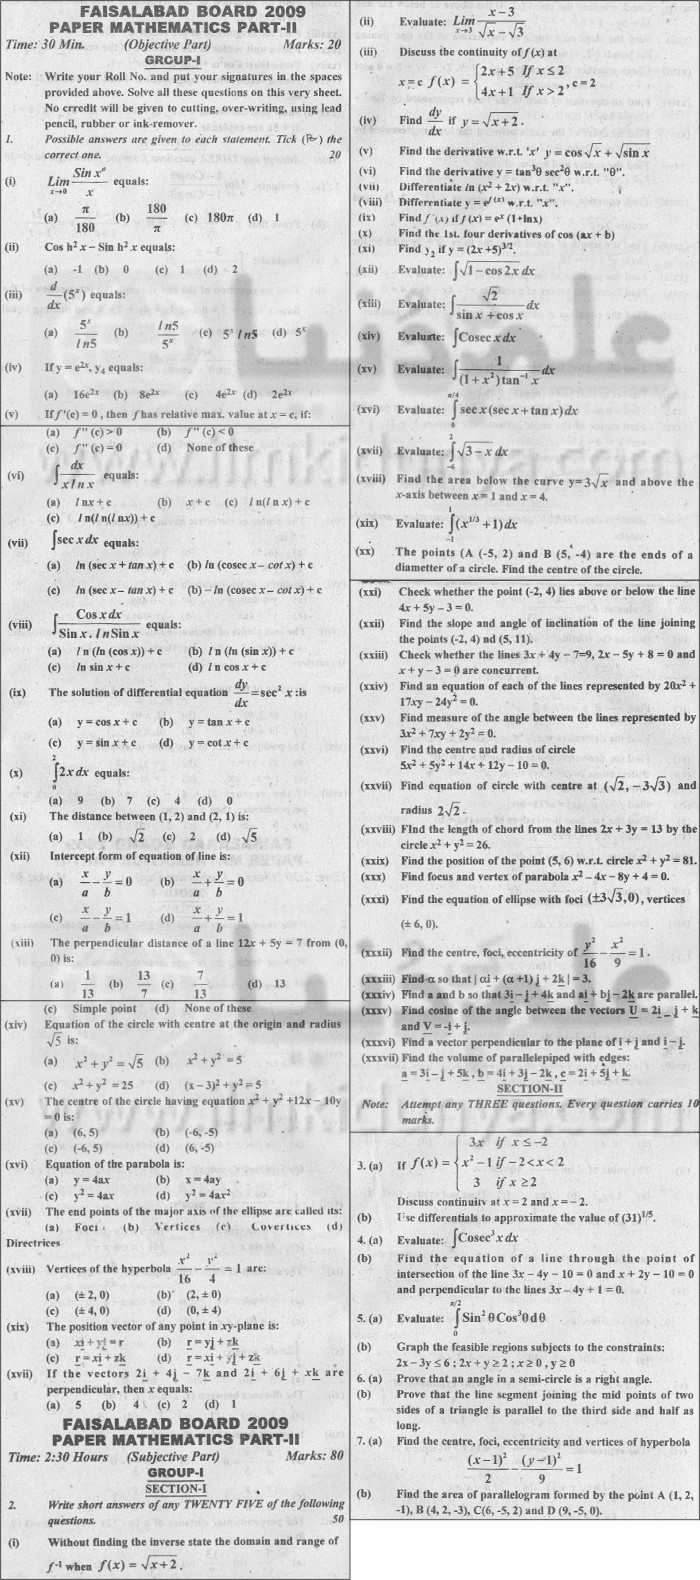 FAISALABAD BOARD 2009
PAPER MATHEMATICS PART-II
Time: 30 Min. (Objective Part) Marks: 20
GRCUP-I
Note: Write your Roll No. and put your signatures in the spaces
provided above. Solve all these questions on this very sheet.
No crredit will be given to cutting, over-writing, using lead
pencil, rubber or ink-remover.
1. Possible answers are given to each statement. Tick (✓) the
correct one. 20
(i) Lim x→0 Sin x° / x equals:
(a) π/180 (b) 180/π (c) 180π (d) 1
(ii) Cos h² x – Sin h² x equals:
(a) -1 (b) 0 (c) 1 (d) 2
(iii) d/dx (5ˣ) equals:
(a) 5ˣ / ln5 (b) ln5 / 5ˣ (c) 5ˣ ln5 (d) 5ˣ
(iv) If y = e²ˣ, y₄ equals:
(a) 16e²ˣ (b) 8e²ˣ (c) 4e²ˣ (d) 2e²ˣ
(v) If f '(c) = 0 , then f has relative max. value at x = c, if:
(a) f '' (c) > 0 (b) f '' (c) < 0
(c) f '' (c) = 0 (d) None of these
(vi) ∫ dx / x ln x equals:
(a) l nx + c (b) x + c (c) l n(l n x) + c
(c) l n(l n(l nx)) + c
(vii) ∫sec x dx equals:
(a) ln (sec x + tan x) + c (b) ln (cosec x – cot x) + c
(c) ln (sec x – tan x) + c (b) – ln (cosec x – cot x) + c
(viii) ∫ Cos x dx / Sin x . l n Sin x equals:
(a) l n (ln (cos x)) + c (b) l n (ln (sin x)) + c
(c) ln sin x + c (d) l n cos x + c
(ix) The solution of differential equation dy/dx = sec² x :is
(a) y = cos x + c (b) y = tan x + c
(c) y = sin x + c (d) y = cot x + c
(x) ∫₀² 2x dx equals:
(a) 9 (b) 7 (c) 4 (d) 0
(xi) The distance between (1, 2) and (2, 1) is:
(a) 1 (b) √2 (c) 2 (d) √5
(xii) Intercept form of equation of line is:
(a) x/a – y/b = 0 (b) x/a + y/b = 0
(c) x/a – y/b = 1 (d) x/a + y/b = 1
(xiii) The perpendicular distance of a line 12x + 5y = 7 from (0,
0) is:
(a) 1/13 (b) 13/7 (c) 7/13 (d) 13
(c) Simple point (d) None of these
(xiv) Equation of the circle with centre at the origin and radius
√5 is:
(a) x² + y² = √5 (b) x² + y² = 5
(c) x² + y² = 25 (d) (x – 3)² + y² = 5
(xv) The centre of the circle having equation x² + y² +12x – 10y
= 0 is:
(a) (6, 5) (b) (-6, -5)
(c) (-6, 5) (d) (6, -5)
(xvi) Equation of the parabola is:
(a) y = 4ax (b) x = 4ay
(c) y² = 4ax (d) y² = 4ax²
(xvii) The end points of the major axis of the ellipse are called its:
(a) Foci (b) Vertices (c) Covertices (d)
Directrices
(xviii) Vertices of the hyperbola x²/16 – y²/4 = 1 are:
(a) (± 2, 0) (b) (2, ± 0)
(c) (± 4, 0) (d) (0, ± 4)
(xix) The position vector of any point in xy-plane is:
(a) xi + yj = r (b) r = yj + zk
(c) r = xi + zk (d) r = xi + yj + zk
(xvii) If the vectors 2i + 4j – 7k and 2i + 6j + xk are
perpendicular, then x equals:
(a) 5 (b) 4 (c) 2 (d) 1
FAISALABAD BOARD 2009
PAPER MATHEMATICS PART-II
Time: 2:30 Hours (Subjective Part) Marks: 80
GROUP-I
SECTION-I
2. Write short answers of any TWENTY FIVE of the following
questions. 50
(i) Without finding the inverse state the domain and range of
f⁻¹ when f(x) = √x+2 .
(ii) Evaluate: Lim x→3 x – 3 / √x – √3
(iii) Discuss the continuity of f (x) at
x = c f(x) = { 2x + 5 If x ≤ 2
4x + 1 If x > 2 , c = 2
(iv) Find dy/dx if y = √x+2 .
(v) Find the derivative w.r.t. 'x' y = cos √x + √sin x
(vi) Find the derivative y = tan³θ sec²θ w.r.t. "θ".
(vii) Differentiate ln (x² + 2x) w.r.t. "x".
(viii) Differentiate y = e^f(x) w.r.t. "x".
(ix) Find f '(x) if f (x) = eˣ (1+lnx)
(x) Find the 1st. four derivatives of cos (ax + b)
(xi) Find y₂ if y = (2x +5)^3/2.
(xii) Evaluate: ∫√1 – cos 2x dx
(xiii) Evaluate: ∫ √2 / sin x + cos x dx
(xiv) Evaluate: ∫Cosec x dx
(xv) Evaluate: ∫ 1 / (1 + x²) tan⁻¹ x dx
(xvi) Evaluate: ∫₀^π/4 sec x (sec x + tan x) dx
(xvii) Evaluate: ∫₋₆² √3 – x dx
(xviii) Find the area below the curve y= 3√x and above the
x-axis between x = 1 and x = 4.
(xix) Evaluate: ∫₋₁¹ (x^1/3 + 1) dx
(xx) The points (A (-5, 2) and B (5, -4) are the ends of a
diametter of a circle. Find the centre of the circle.
(xxi) Check whether the point (-2, 4) lies above or below the line
4x + 5y – 3 = 0.
(xxii) Find the slope and angle of inclination of the line joining
the points (-2, 4) nd (5, 11).
(xxiii) Check whether the lines 3x + 4y – 7=9, 2x – 5y + 8 = 0 and
x + y – 3 = 0 are concurrent.
(xxiv) Find an equation of each of the lines represented by 20x² +
17xy – 24y² = 0.
(xxv) Find measure of the angle between the lines represented by
3x² + 7xy + 2y² = 0.
(xxvi) Find the centre and radius of circle
5x² + 5y² + 14x + 12y – 10 = 0.
(xxvii) Find equation of circle with centre at (√2, –3√3) and
radius 2√2 .
(xxviii) FInd the length of chord from the lines 2x + 3y = 13 by the
circle x² + y² = 26.
(xxix) Find the position of the point (5, 6) w.r.t. circle x² + y² = 81.
(xxx) Find focus and vertex of parabola x² – 4x – 8y + 4 = 0.
(xxxi) Find the equation of ellipse with foci (±3√3, 0), vertices
(± 6, 0).
(xxxii) Find the centre, foci, eccentricity of y²/16 – x²/9 = 1 .
(xxxiii) Find α so that | αi + (α +1) j + 2k | = 3.
(xxxiv) Find a and b so that 3i – j + 4k and ai + bj – 2k are parallel.
(xxxv) Find cosine of the angle between the vectors U = 2i – j + k
and V = -i + j.
(xxxvi) Find a vector perpendicular to the plane of i + j and i – j.
(xxxvii) Find the volume of parallelepiped with edges:
a = 3i – j + 5k , b = 4i + 3j – 2k , c = 2i + 5j + k.
SECTION-II
Note: Attempt any THREE questions. Every question carries 10
marks.
3. (a) If f(x) = { 3x if x ≤ –2
x² – 1 if – 2 < x < 2
3 if x ≥ 2
Discuss continuity at x = 2 and x = – 2.
(b) Use differentials to approximate the value of (31)^1/5.
4. (a) Evaluate: ∫Cosec³ x dx
(b) Find the equation of a line through the point of
intersection of the line 3x – 4y – 10 = 0 and x + 2y – 10 = 0
and perpendicular to the lines 3x – 4y + 1 = 0.
5. (a) Evaluate: ∫₀^π/2 Sin² θ Cos³ θ dθ
(b) Graph the feasible regions subjects to the constraints:
2x – 3y ≤ 6 ; 2x + y ≥ 2 ; x ≥ 0 , y ≥ 0
6. (a) Prove that an angle in a semi-circle is a right angle.
(b) Prove that the line segment joining the mid points of two
sides of a triangle is parallel to the third side and half as
long.
7. (a) Find the centre, foci, eccentricity and vertices of hyperbola
(x – 1)²/2 – (y – 1)²/9 = 1
(b) Find the area of parallelogram formed by the point A (1, 2,
-1), B (4, 2, -3), C(6, -5, 2) and D (9, -5, 0).